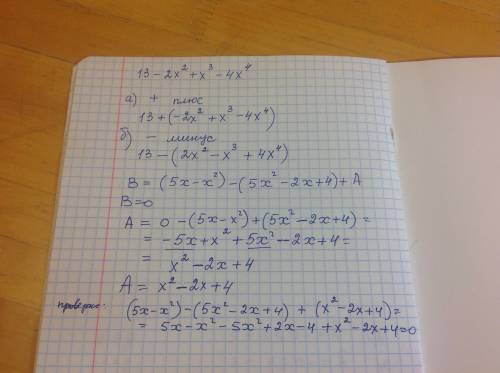 13 - 2x² + x³ - 4x⁴
а) + плюс
13 + (-2x² + x³ - 4x⁴)
б) - минус
13 - (2x² - x³ + 4x⁴)
B = (5x - x²) - (5x² - 2x + 4) + A
B = 0
A = 0 - (5x - x²) + (5x² - 2x + 4) =
= -5x + x² + 5x² - 2x + 4 =
= x² - 2x + 4
A = x² - 2x + 4
(5x - x²) - (5x² - 2x + 4) + (x² - 2x + 4) =
= 5x - x² - 5x² + 2x - 4 + x² - 2x + 4 = 0